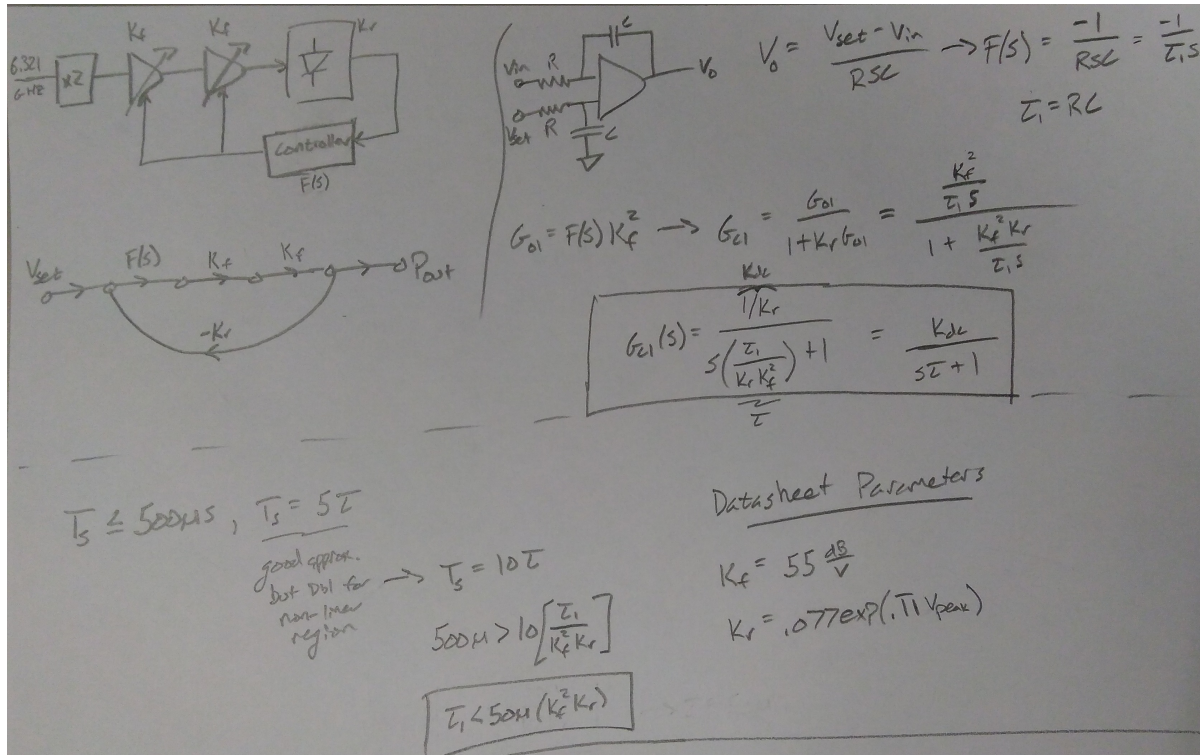 Kf Kf Kr
6.321 GHz x2
Controller
F(s)
Vset F(s) Kf Kf Pout
-Kr
Vin R C Vo
Vset R C
Vo = (Vset - Vin)/(RSC) → F(s) = -1/(RSC) = -1/(τ₁s)
τ₁ = RC
Gol = F(s) Kf² → Gcl = Gol/(1+KrGol) = (Kf²/(τ₁s))/(1 + Kf²Kr/(τ₁s))
Kdc
Gcl(s) = (1/Kr)/(s(τ₁/(KrKf²)) + 1) = Kdc/(sτ+1)
τ
Ts ≤ 500μs, Ts = 5τ
good approx.
but Dbl for → Ts = 10τ
non-linear
region
500μ > 10[τ₁/(Kf²Kr)]
τ₁ < 50μ(Kf²Kr)
Datasheet Parameters
Kf = 55 dB/V
Kr = .077exp( Vpeak)